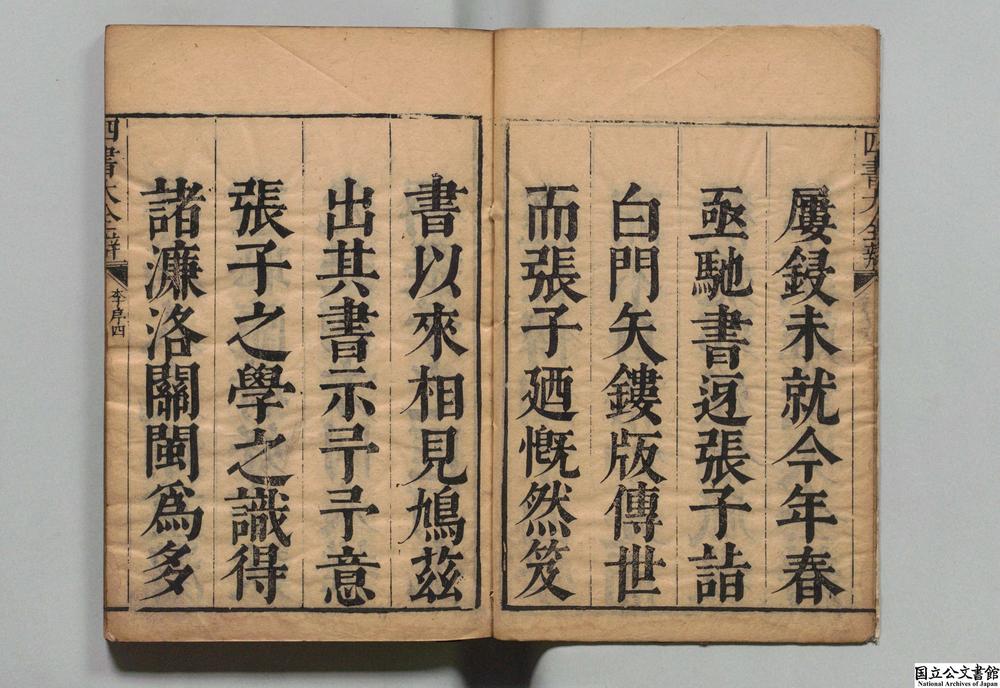 屢鋟未就今年春
亟馳書迓張子詣
白門矢鏤版傳世
而張子廼慨然笈
書以來相見鳩茲
出其書示予予意
張子之學之識得
諸濂洛關閩爲多
四書大全辯
四書大全辯
李序四
国立公文書館
National Archives of Japan